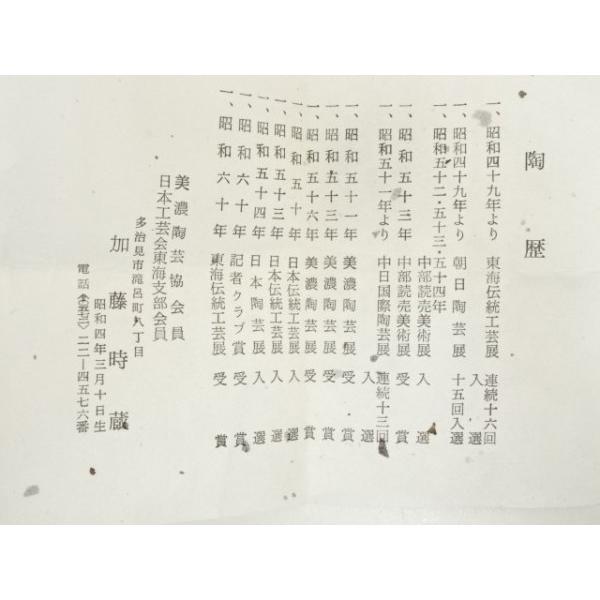 陶歴
一、昭和四十九年より 東海伝統工芸展 連続十六回
入選
一、昭和四十九年より 朝日陶芸展 十五回入選
一、昭和五十二・五十三・五十四年
中部読売美術展 入選
一、昭和五十三年 中部読売美術展 受賞
一、昭和五十一年より 中日国際陶芸展 連続十三回
入選
一、昭和五十一年 美濃陶芸展 受賞
一、昭和五十三年 美濃陶芸展 受賞
一、昭和五十六年 美濃陶芸展 受賞
一、昭和五十年 日本伝統工芸展 入選
一、昭和五十三年 日本伝統工芸展 入選
一、昭和五十四年 日本陶芸展 入選
一、昭和六十年 記者クラブ賞 受賞
一、昭和六十年 東海伝統工芸展 受賞
美濃陶芸協会会員
日本工芸会東海支部会員
多治見市滝呂町八丁目
加藤時蔵
昭和四年三月十日生
電話 二二―四五七六番